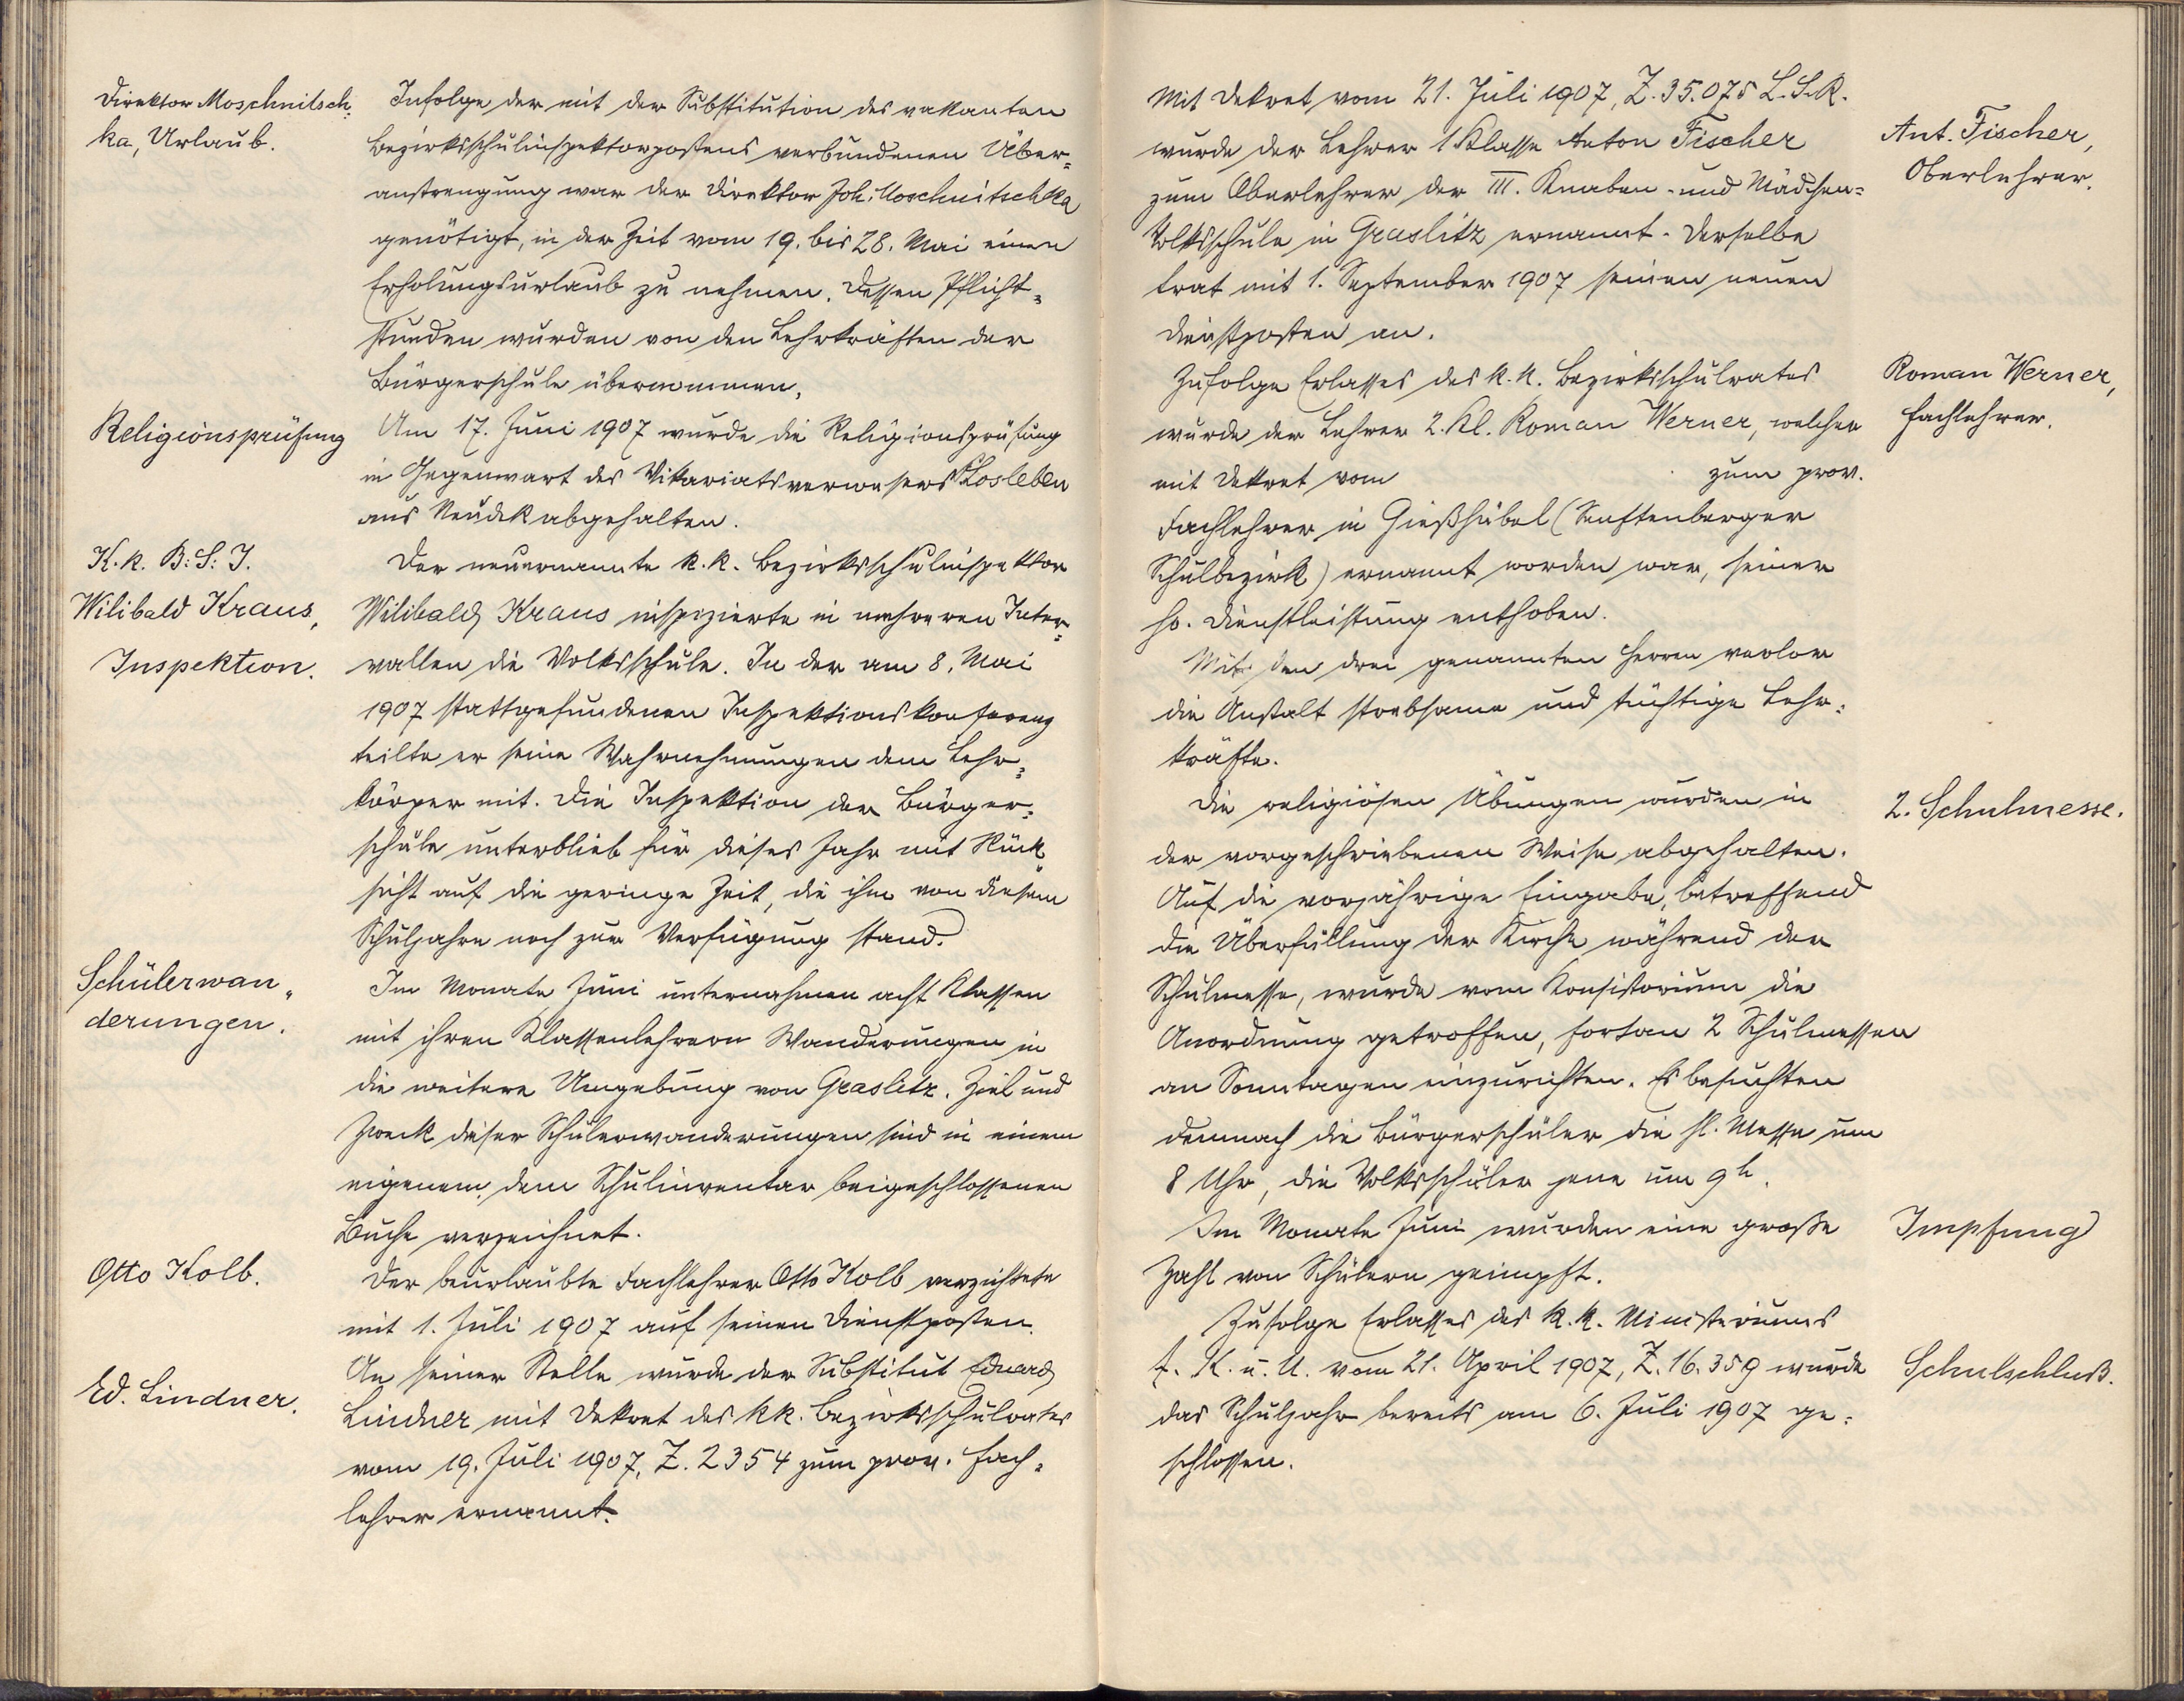 Direktor Moschnitsch-
ka, Urlaub.
Infolge der mit der Substitution des vakanten
Bezirksschulinspektorpostens verbundenen Über-
anstrengung war der Direktor Joh. Moschnitschka
genötigt, in der Zeit vom 19. bis 28. Mai einen
Erholungsurlaub zu nehmen. Dessen Pflicht-
stunden wurden von den Lehrkräften der
Bürgerschule übernommen.
Religionsprüfung
Am 17. Juni 1907 wurde die Religionsprüfung
in Gegenwart des Vikariatsverwesers Losleben
aus Neudek abgehalten.
K. k. B: S: I.
Wilibald Kraus,
Inspektion.
Der neuernannte k. k. Bezirksschulinspektor
Wilibald Kraus inspizierte in mehreren Inter-
vallen die Volksschule. In der am 8. Mai
1907 stattgefundenen Inspektionskonferenz
teilte er seine Wahrnehmungen dem Lehr-
körper mit. Die Inspektion der Bürger-
schule unterblieb für dieses Jahr mit Rück-
sicht auf die geringe Zeit, die ihm von diesem
Schuljahre noch zur Verfügung stand.
Schülerwan-
derungen.
Im Monate Juni unternahmen acht Klassen
mit ihren Klassenlehrern Wanderungen in
die weitere Umgebung von Graslitz. Ziel und
Zweck dieser Schülerwanderungen sind in einem
eigenem dem Schulinventar beigeschlossenen
Buche verzeichnet.
Otto Kolb.
Der beurlaubte Fachlehrer Otto Kolb verzichtete
mit 1. Juli 1907 auf seinen Dienstposten.
Ed. Lindner.
An seiner Stelle wurde der Substitut Eduard
Lindner mit Dekret des kk. Bezirksschulrates
vom 19. Juli 1907, Z. 2354 zum prov. Fach-
lehrer ernannt.
Mit Dekret vom 21. Juli 1907, Z. 35.075 L. S. R.
wurde der Lehrer 1 Klasse Anton Fischer
zum Oberlehrer der III. Knaben- und Mädchen-
Volksschule in Graslitz ernannt. Derselbe
trat mit 1. September 1907 seinen neuen
Dienstposten an.
Ant. Fischer,
Oberlehrer.
Zufolge Erlasses des k. k. Bezirksschulrates
wurde der Lehrer 2. Kl. Roman Werner, welcher
mit Dekret vom zum prov.
Fachlehrer in Gießhübel (Senftenberger
Schulbezirk) ernannt worden war, seiner
ho. Dienstleistung enthoben.
Roman Werner,
Fachlehrer.
Mit den drei genannten Herren verlor
die Anstalt strebsame und tüchtige Lehr-
kräfte.
Die religiösen Übungen wurden in
der vorgeschriebenen Weise abgehalten.
Auf die vorjährige Eingabe, betreffend
die Überfüllung der Kirche während der
Schulmesse, wurde vom Konsistorium die
Anordnung getroffen, fortan 2 Schulmessen
an Sonntagen einzurichten. Es besuchten
demnach die Bürgerschüler die hl. Messe um
8 Uhr, die Volksschüler jene um 9h.
2. Schulmesse.
Im Monate Juni wurden eine große
Zahl von Schülern geimpft.
Impfung
Zufolge Erlasses des k. k. Ministeriums
f. K. u. U. vom 21. April 1907, Z. 16.359 wurde
das Schuljahr bereits am 6. Juli 1907 ge-
schlossen.
Schulschluß.